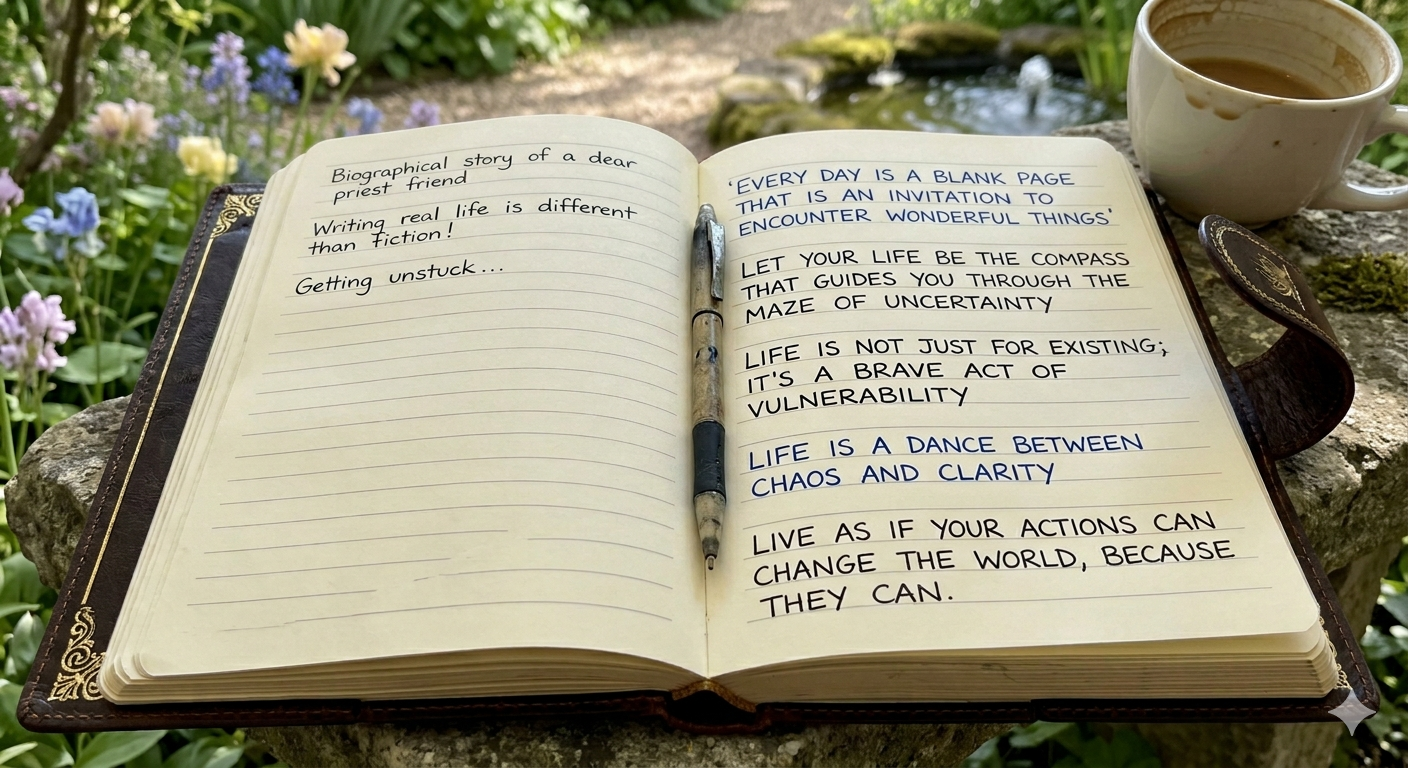 Biographical story of a dear
priest friend
Writing real life is different
than Fiction!
Getting unstuck...
'EVERY DAY IS A BLANK PAGE
THAT IS AN INVITATION TO
ENCOUNTER WONDERFUL THINGS'
LET YOUR LIFE BE THE COMPASS
THAT GUIDES YOU THROUGH THE
MAZE OF UNCERTAINTY
LIFE IS NOT JUST FOR EXISTING;
IT'S A BRAVE ACT OF
VULNERABILITY
LIFE IS A DANCE BETWEEN
CHAOS AND CLARITY
LIVE AS IF YOUR ACTIONS CAN
CHANGE THE WORLD, BECAUSE
THEY CAN.